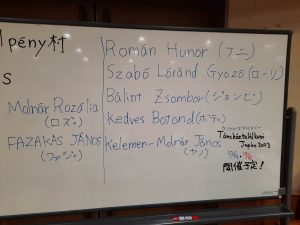 pény村
s
Molnár Rozália
(ロズィ)
FAZAKAS JÁNOS
(ファジャ)
Román Hunor (フニ)
Szabó Lóránd Győző (ローリ)
Bálint Zsombor (ジョンビ)
Kedves Botond (ボティ)
Kelemen-Molnár János
(ヤノ)
Táncháztalálkozó
Japán 2023
開催予定!